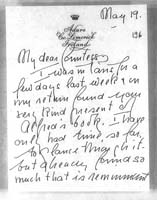 May 19.
Adare
Co. Limerick
Ireland
196
My dear Countess,
I was in Paris for a
few days last week & on
my return found your
very kind present of
Alfred's book. I have
only had time so far
to glance through it.
but already found so
much that is reminiscent